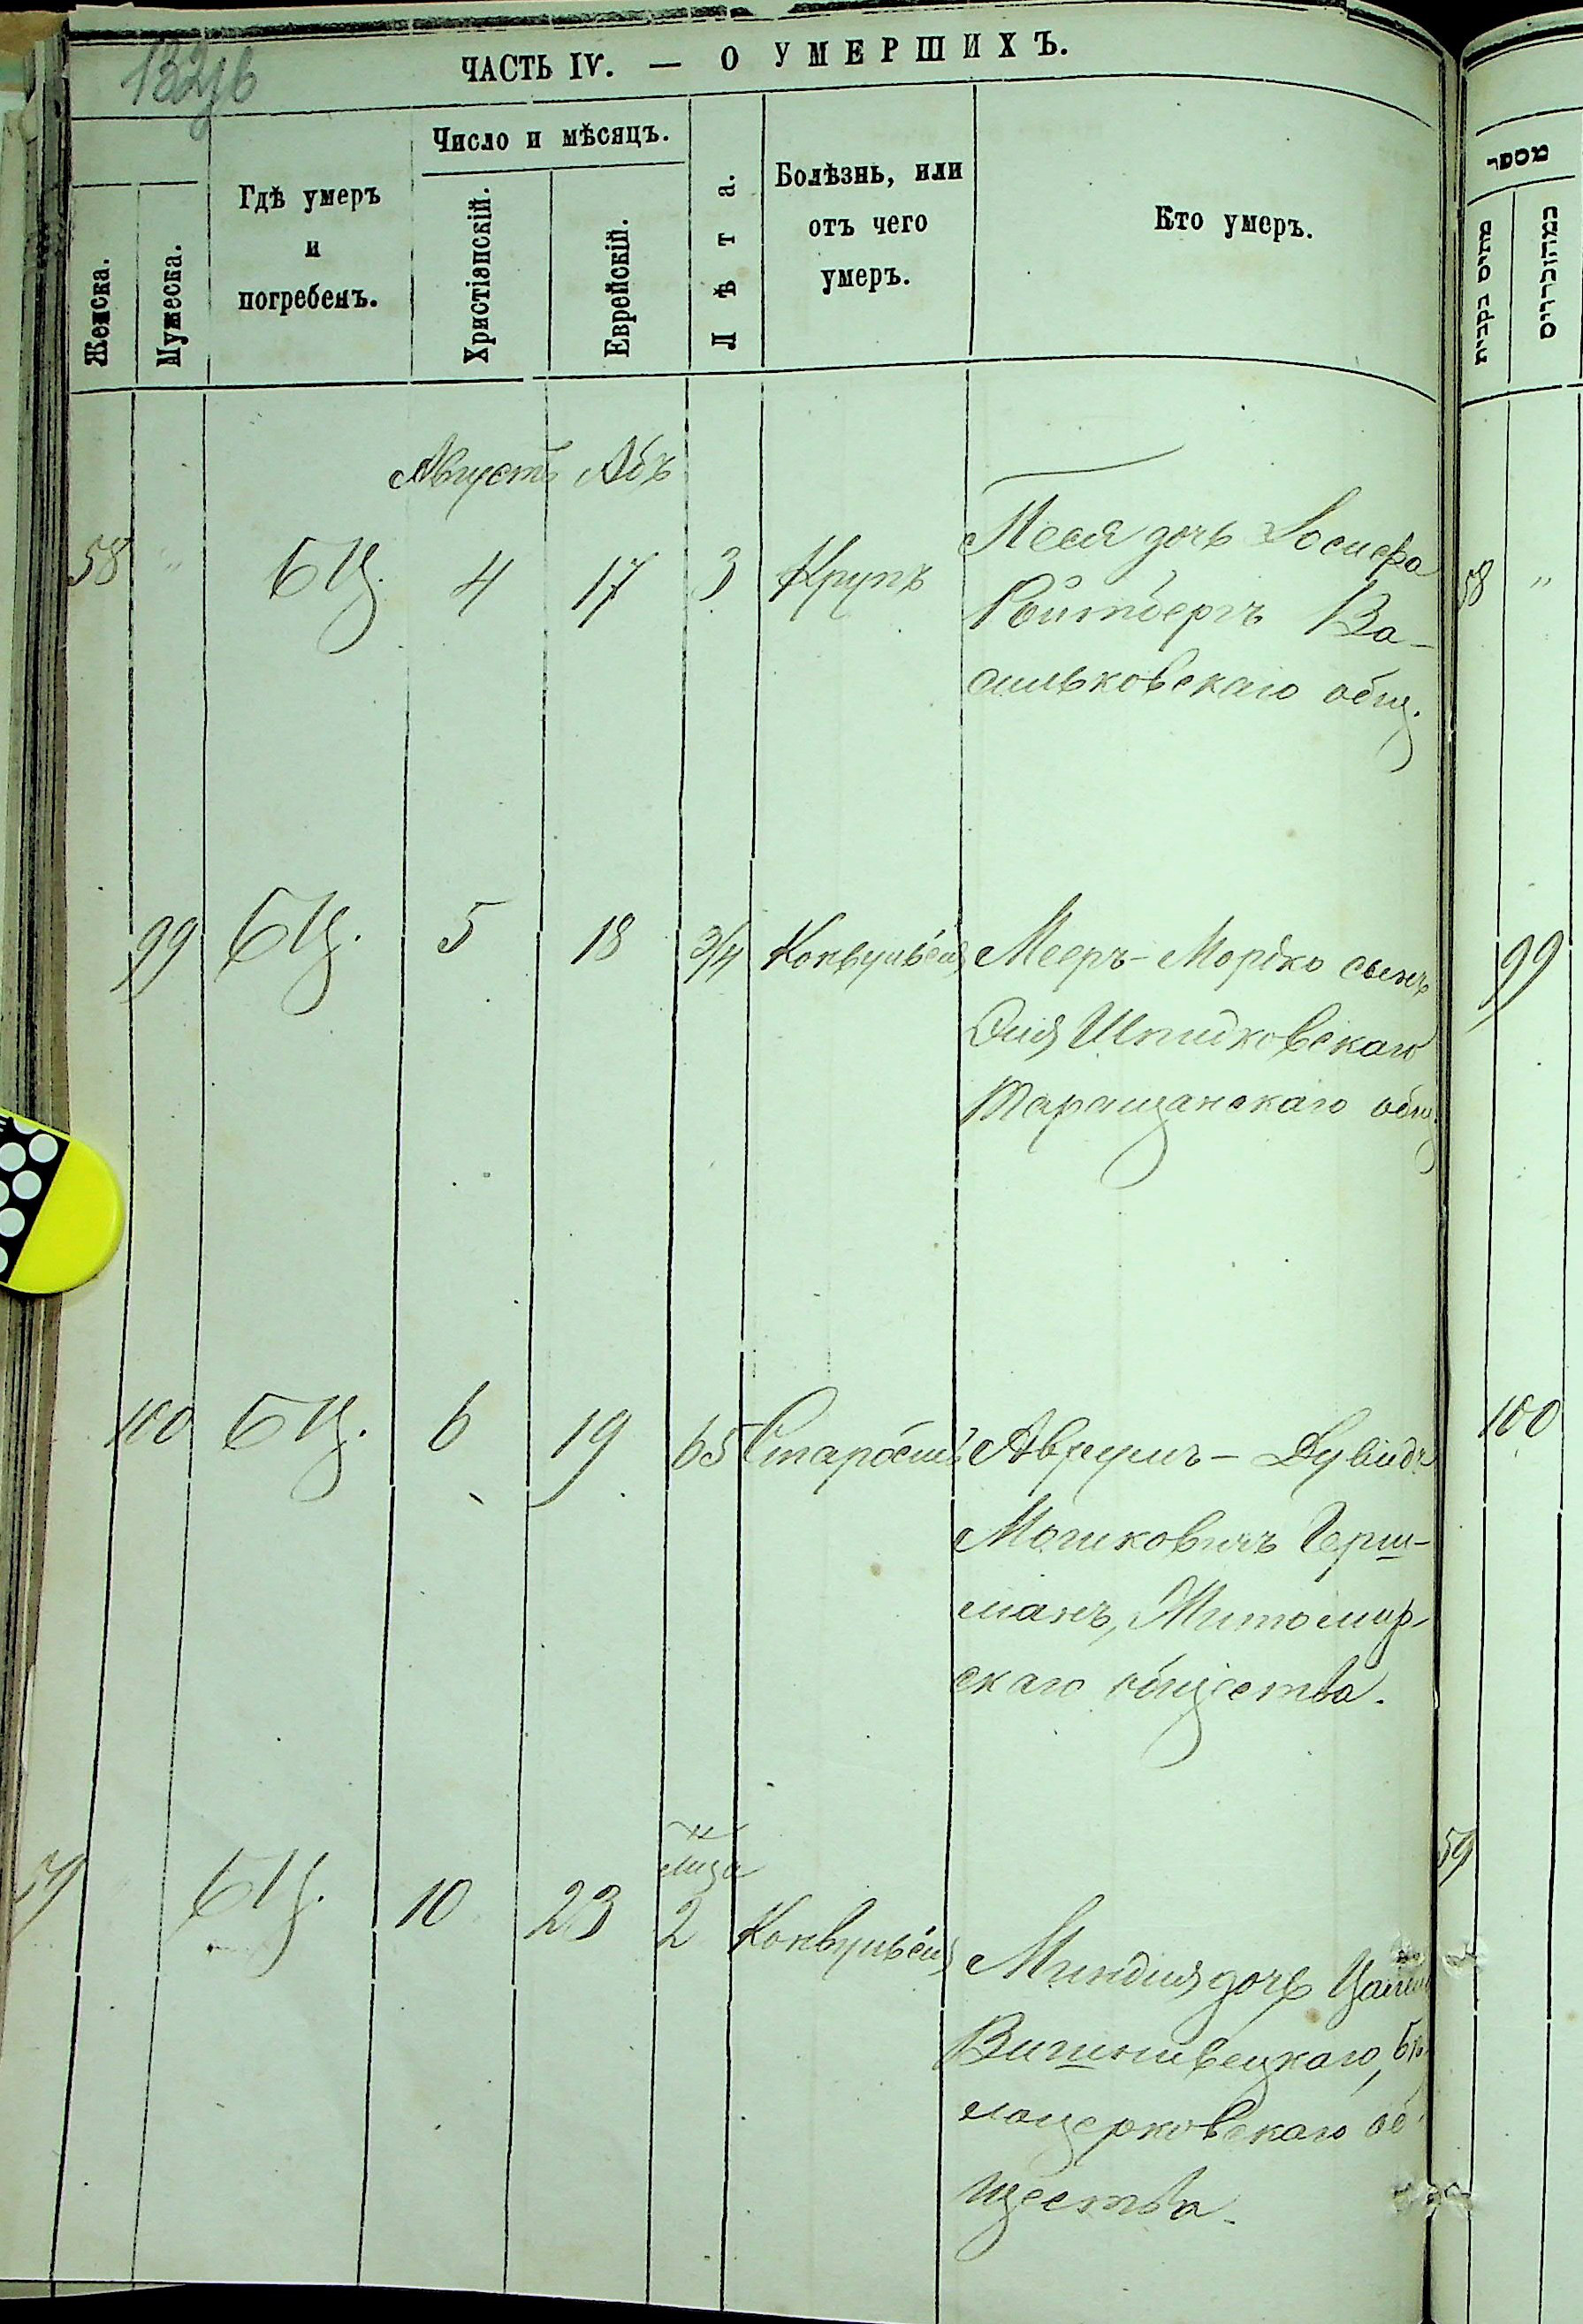 132зв
ЧАСТЬ IV. — О УМЕРШИХЪ.
Женска.
Мужеска.
Гдѣ умеръ
и
погребенъ.
Число и мѣсяцъ.
Христіанскій.
Еврейскій.
Лѣта.
Болѣзнь, или
отъ чего
умеръ.
Кто умеръ.
מספר
מתים בקבית
כמהזכרים
Августъ Абъ
58 " БЦ. 4 17 3 Крупъ Песя дочь Іосифа
Ройтбергъ Ва-
сильковскаго общ.
58 "
99 БЦ. 5 18 3/4 Конвульсія Мееръ-Мортко сынъ
Шпиковскаго
Таращанскаго общ.
99
100 БЦ. 6 19 65 Старость Аврумъ-Дувидъ
Мошковичъ Герш-
манъ, Житомир-
скаго общества.
100
59 БЦ. 10 23 2 Конвульсія Миндля дочь
Вишнивецкаго, Бѣ-
лоцерковскаго об-
щества.
59